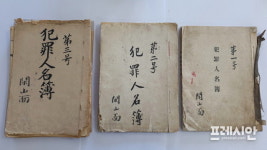 第三号
犯罪人名簿
開山面
第二号
犯罪人名簿
開山面
第一号
犯罪人名簿
開山面
프레시안